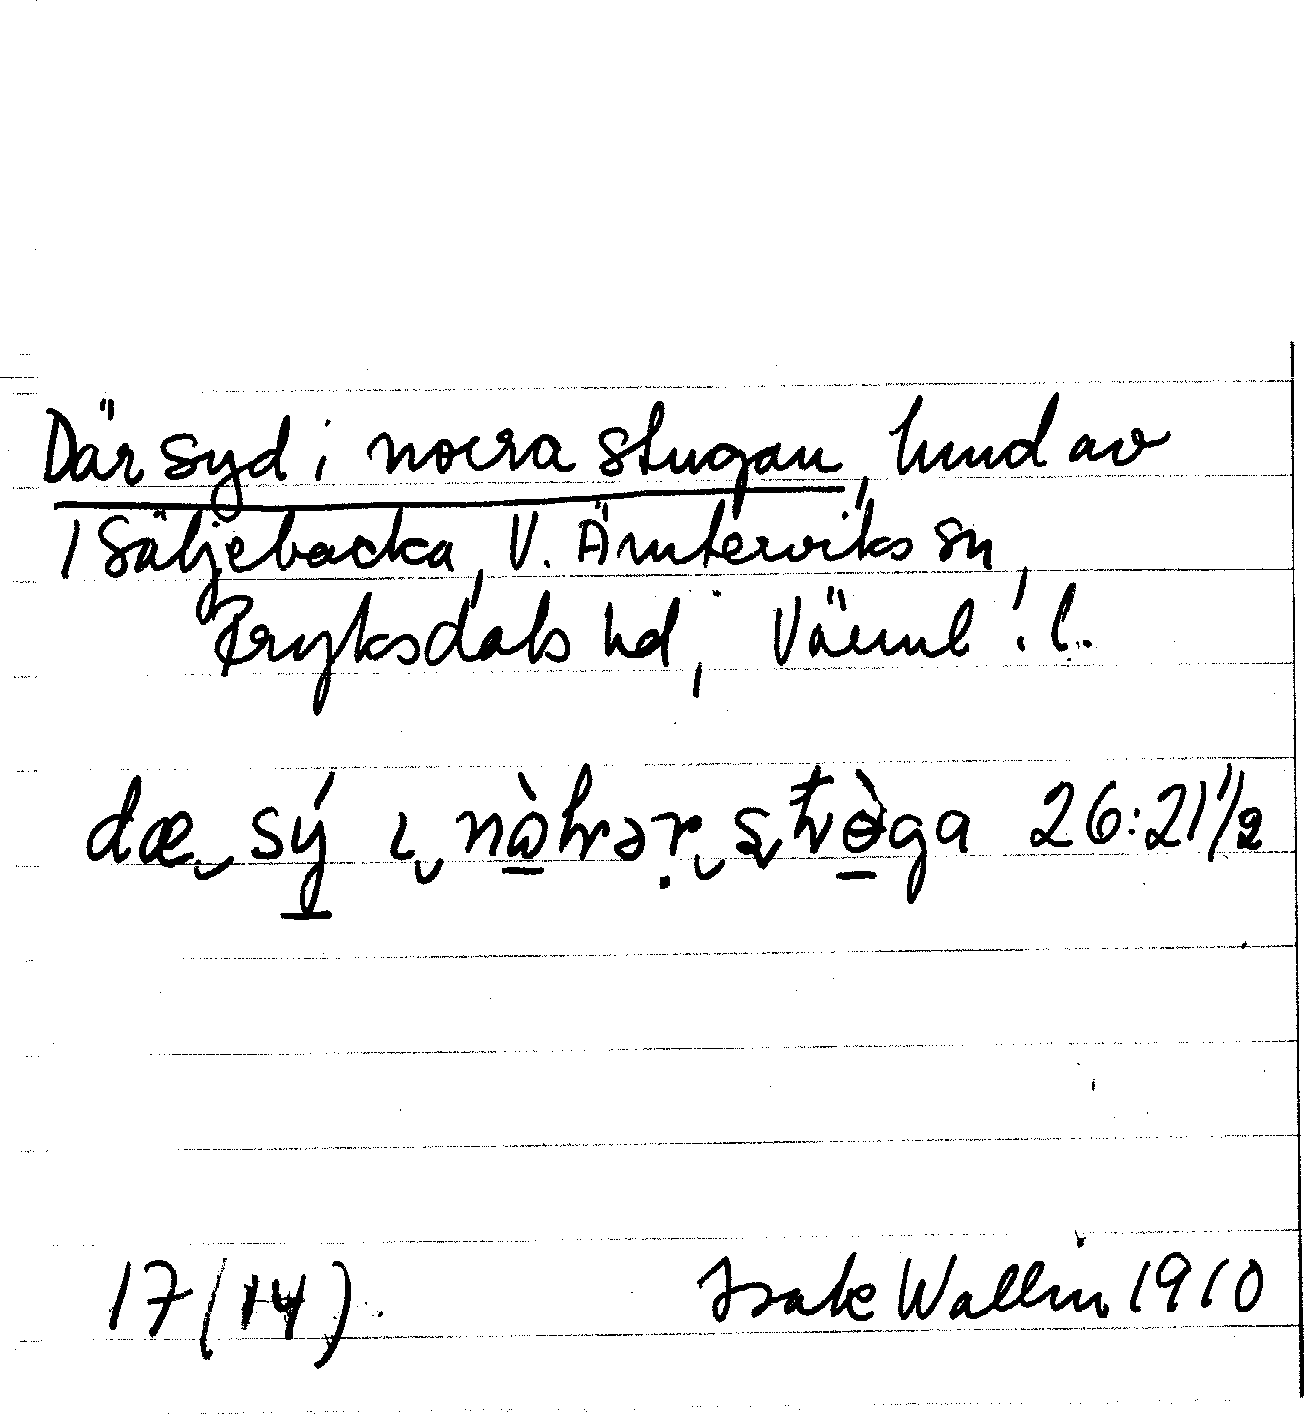 Där syd i norra stugan, hmd av
1 Säljebacka, V. Ämterviks sn,
Fryksdals hd, Värml. l.
26:21 1/2
17 (14).
Isak Wallin 1910